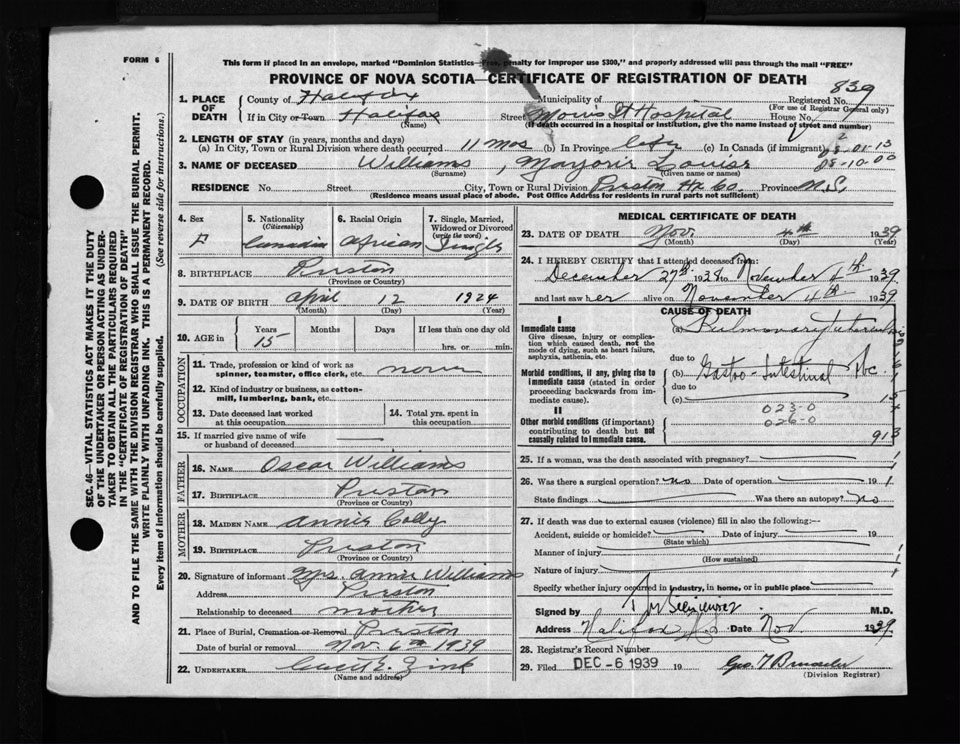 FORM 6
This form if placed in an envelope, marked "Dominion Statistics—Free, penalty for improper use $300," and properly addressed will pass through the mail "FREE"
PROVINCE OF NOVA SCOTIA—CERTIFICATE OF REGISTRATION OF DEATH
839
1. PLACE OF DEATH
County of Halifax Municipality of Registered No.
(For use of Registrar General only)
If in City or Town Halifax Street Morris St Hospital House No.
(Name) (If death occurred in a hospital or institution, give the name instead of street and number)
2. LENGTH OF STAY (in years, months and days)
(a) In City, Town or Rural Division where death occurred 11 mos (b) In Province life (c) In Canada (if immigrant)
3. NAME OF DECEASED Williams, Marjorie Louise
(Surname) (Given name or names)
RESIDENCE No. Street City, Town or Rural Division Preston Hx Co. Province N.S.
(Residence means usual place of abode. Post Office Address for residents in rural parts not sufficient)
4. Sex F
5. Nationality (Citizenship) Canadian
6. Racial Origin African
7. Single, Married, Widowed or Divorced (write the word) Single
8. BIRTHPLACE Preston
(Province or Country)
9. DATE OF BIRTH April 12 1924
(Month) (Day) (Year)
10. AGE in Years 15 Months Days If less than one day old hrs. or min.
OCCUPATION
11. Trade, profession or kind of work as spinner, teamster, office clerk, etc. none
12. Kind of industry or business, as cotton-mill, lumbering, bank, etc.
13. Date deceased last worked at this occupation
14. Total yrs. spent in this occupation
15. If married give name of wife or husband of deceased —
FATHER
16. NAME Oscar Williams
17. BIRTHPLACE Preston
(Province or Country)
MOTHER
18. MAIDEN NAME Annie Colly
19. BIRTHPLACE Preston
(Province or Country)
20. Signature of informant Mrs. Annie Williams
Address Preston
Relationship to deceased mother
21. Place of Burial, Cremation or Removal Preston
Date of burial or removal Nov. 6th 1939
22. UNDERTAKER Cecil E. Zink
(Name and address)
MEDICAL CERTIFICATE OF DEATH
23. DATE OF DEATH Nov 4th 1939
(Month) (Day) (Year)
24. I HEREBY CERTIFY that I attended deceased from:
December 27th 1938 to November 4th 1939
and last saw her alive on November 4th 1939
CAUSE OF DEATH
I
Immediate cause
Give disease, injury or complication which caused death, not the mode of dying, such as heart failure, asphyxia, asthenia, etc.
(a) Pulmonary Tuberculosis
due to
Morbid conditions, if any, giving rise to immediate cause (stated in order proceeding backwards from immediate cause).
(b) Gastro-Intestinal tbc.
due to
(c)
II
Other morbid conditions (if important) contributing to death but not causally related to immediate cause.
023-0
026-0
913
25. If a woman, was the death associated with pregnancy?
26. Was there a surgical operation? no Date of operation 19
State findings Was there an autopsy? no
27. If death was due to external causes (violence) fill in also the following:—
Accident, suicide or homicide? Date of injury 19
(State which)
Manner of injury
(How sustained)
Nature of injury
Specify whether injury occurred in industry, in home, or in public place
Signed by M.D.
Address Halifax N.S. Date Nov 1939
28. Registrar's Record Number
29. Filed DEC -6 1939 19
(Division Registrar)
SEC. 46—VITAL STATISTICS ACT MAKES IT THE DUTY
OF THE UNDERTAKER OR PERSON ACTING AS UNDER-
TAKER TO OBTAIN ALL THE PARTICULARS REQUIRED
IN THE "CERTIFICATE OF REGISTRATION OF DEATH"
AND TO FILE THE SAME WITH THE DIVISION REGISTRAR WHO SHALL ISSUE THE BURIAL PERMIT.
WRITE PLAINLY WITH UNFADING INK. THIS IS A PERMANENT RECORD.
Every item of information should be carefully supplied. (See reverse side for instructions.)